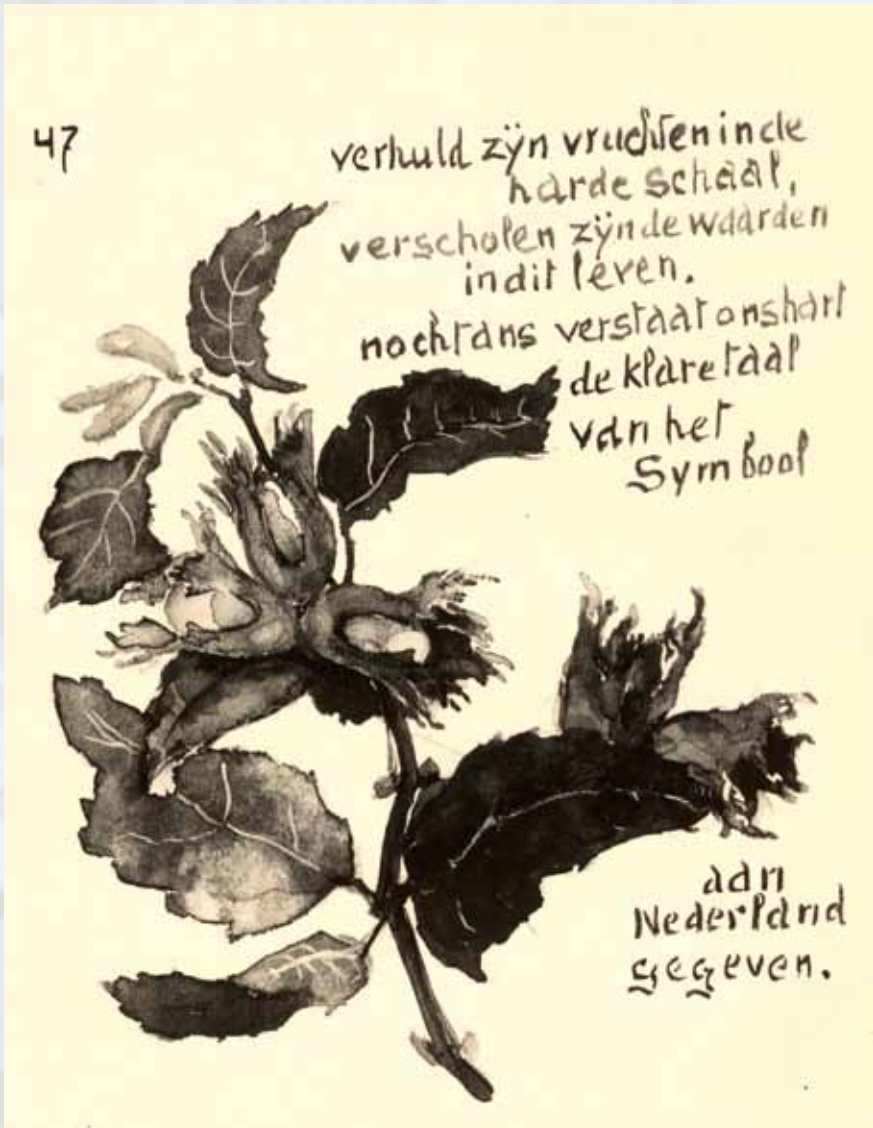 47
verhuld zÿn vruchten in de
harde schaal,
verscholen zÿn de waarden
in dit leven.
nochtans verstaat ons hart
de klare taal
van het
Symbool
aan
Nederland
gegeven.